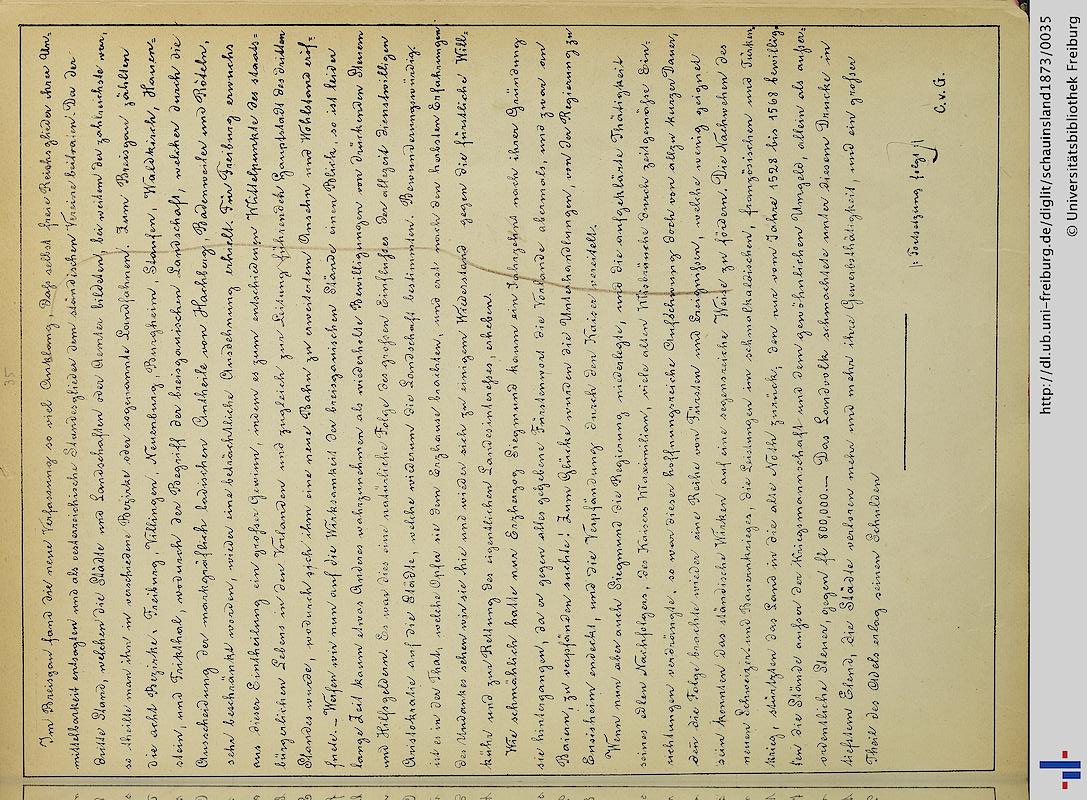 Im Breisgau fand die neue Verfassung so viel Anklang, daß selbst freie Reichsglieder ihrer Un-
mittelbarkeit entsagten und als oesterreichische Standesglieder dem ständischen Vereine beitraten. Da der
dritte Stand, welchen die Städte und Landschaften oder Aemter bildeten, bei weitem der zahlreichste war,
so theilte man ihn in verschiedene Bezirke oder sogenannte Landfahnen. Zum Breisgau zählten
die acht Bezirke: Freiburg, Villingen, Neuenburg, Burgheim, Staufen, Waldkirch, Hauen-
stein, und Frikthal, wodurch der Begriff der breisgauischen Landschaft, welcher durch die
Ausscheidung der markgräflich badischen Antheile von Hachberg, Badenweiler und Röteln,
sehr beschränkt worden, wieder eine beträchtliche Ausdehnung erhielt. Für Freiburg erwuchs
aus dieser Eintheilung ein großer Gewinn, indem es zum entschiedenen Mittelpunkte des staats-
bürgerlichen Lebens in den Vorlanden und zugleich zur Leitung führenden Hauptstadt des dritten
Standes wurde, wodurch sich ihm eine neue Bahn zu erweitertem Ansehn und Wohlstand eröf-
fnete. — Werfen wir nun auf die Wirksamkeit der breisgauischen Stände einen Blick, so ist leider
lange Zeit kaum etwas Anderes wahrzunehmen als wiederholte Bewilligungen von drückenden Steuern
und Hilfsgeldern. Es war dies eine natürliche Folge des großen Einflusses der allezeit dienstwilligen
Aristokratie auf die Städte, welche wiederum die Landschaft bestimmten. Bewunderungswürdig
ist es in der That, welche Opfer sie dem Erzhause brachten, und erst nach den herbsten Erfahrungen
des Undankes sehen wir sie hie und wieder sich zu einigem Widerstand gegen die fürstliche Will-
kühr und zur Rettung des eigentlichen Landesinteresses, erheben.
Wie schmählich hatte nur Erzherzog Siegmund kaum ein Jahrzehnd nach ihrer Gründung
sie hintergangen, da er gegen alles gegebene Fürstenwort die Vorlande abermals, und zwar an
Baiern, zu verpfänden suchte! Zum Glücke wurden die Unterhandlungen, von der Regierung zu
Ensisheim entdeckt, und die Verpfändung durch den Kaiser vereitelt.
Wenn nun aber auch Siegmund die Regierung niederlegte, und die aufgeklärte Thätigkeit
seines edlen Nachfolgers, des Kaisers Maximilian, viele alten Misbräuche durch zeitgemäße Ein-
richtungen verdrängte, so war dieser hoffnungsreiche Aufschwung doch von allzu kurzer Dauer,
denn die Folge brachte wieder eine Reihe von Fürsten und Ereignissen, welche wenig geeignet
sein konnten das ständische Wirken auf eine segensreiche Weise zu fördern. Die Nachwehen des
neuen Schweizer und Bauernkrieges, die Leistungen im schmalkaldischen, französischen und Türken
krieg, stürzten das Land in die alte Noth zurück, denn nur vom Jahre 1528 bis 1568 bewillig-
ten die Stände außer der Kriegsmannschaft und dem gewöhnlichen Umgeld, allein als außer-
ordentliche Steuer, gegen fl 800,000.— Das Landvolk schmachtete unter diesem Drucke in
tiefstem Elend, die Städte verloren mehr und mehr ihre Gewerbsthätigkeit, und ein großer
Theil des Adels erlag seinen Schulden
|: Fortsetzung folgt :|
C. v. G.
35
http://dl.ub.uni-freiburg.de/diglit/schauinsland1873/0035
© Universitätsbibliothek Freiburg